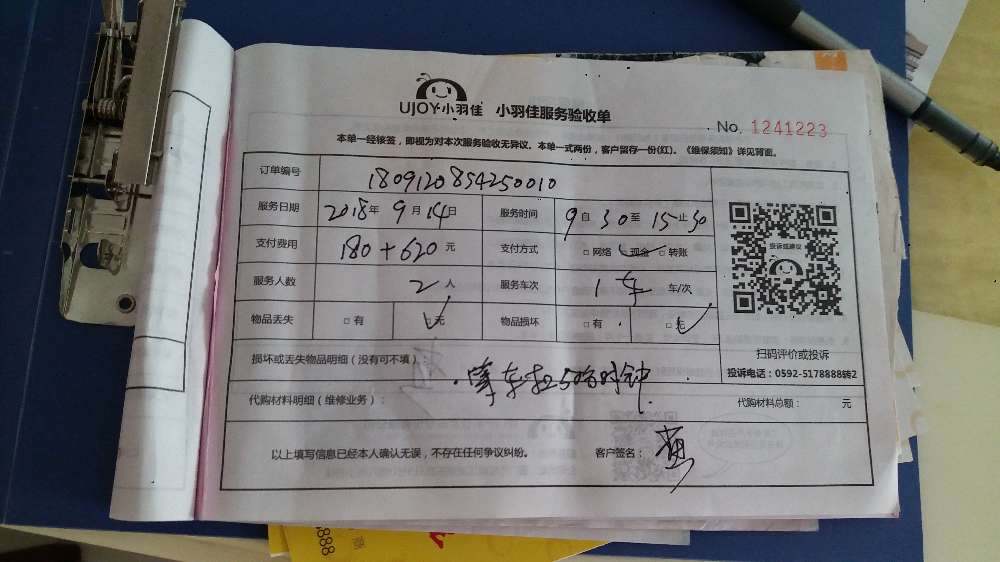 UJOY·小羽佳 小羽佳服务验收单
No. 1241223
本单一经接签，即视为对本次服务验收无异议。本单一式两份，客户留存一份(红)。《维保须知》详见背面。
订单编号 1809120854250010
服务日期 2018年 9月 14日 服务时间 9自30至15止30
支付费用 180+620 元 支付方式 □ 网络 现金 □ 转账
服务人数 2 人 服务车次 1 车 车/次
物品丢失 □ 有 无 物品损坏 □ 有 □ 无
投诉或建议
扫码评价或投诉
投诉电话：0592-5178888转2
损坏或丢失物品明细（没有可不填）：
代购材料明细（维修业务）： 代购材料总额： 元
以上填写信息已经本人确认无误，不存在任何争议纠纷。 客户签名：
888